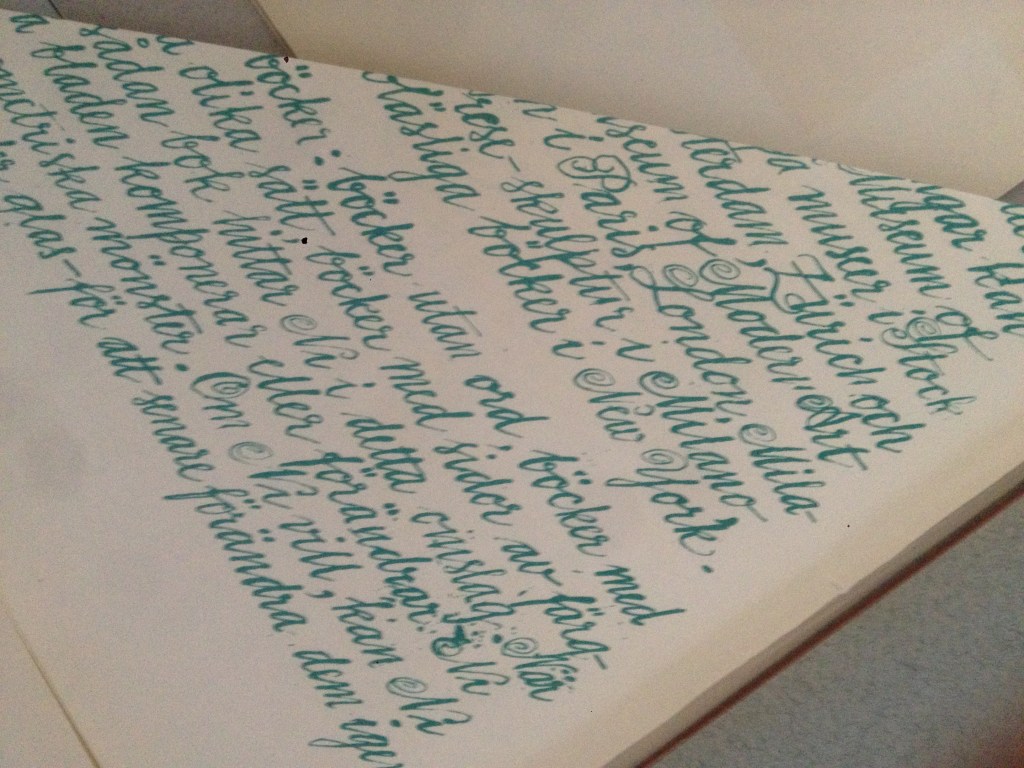 Museum of
museer i Stock
Zürich och
of Modern Art
i Paris, London, Milla-
skulptur i Milano-
oläsliga böcker i New York.
böcker: böcker utan ord, böcker med
olika sätt, böcker med sidor av färg-
sådan bok hittar Ni i detta omslag. När
bladen komponerar eller förändrar Ni
mönster. Om Ni vill, kan Ni
glas-för att senare förändra dem